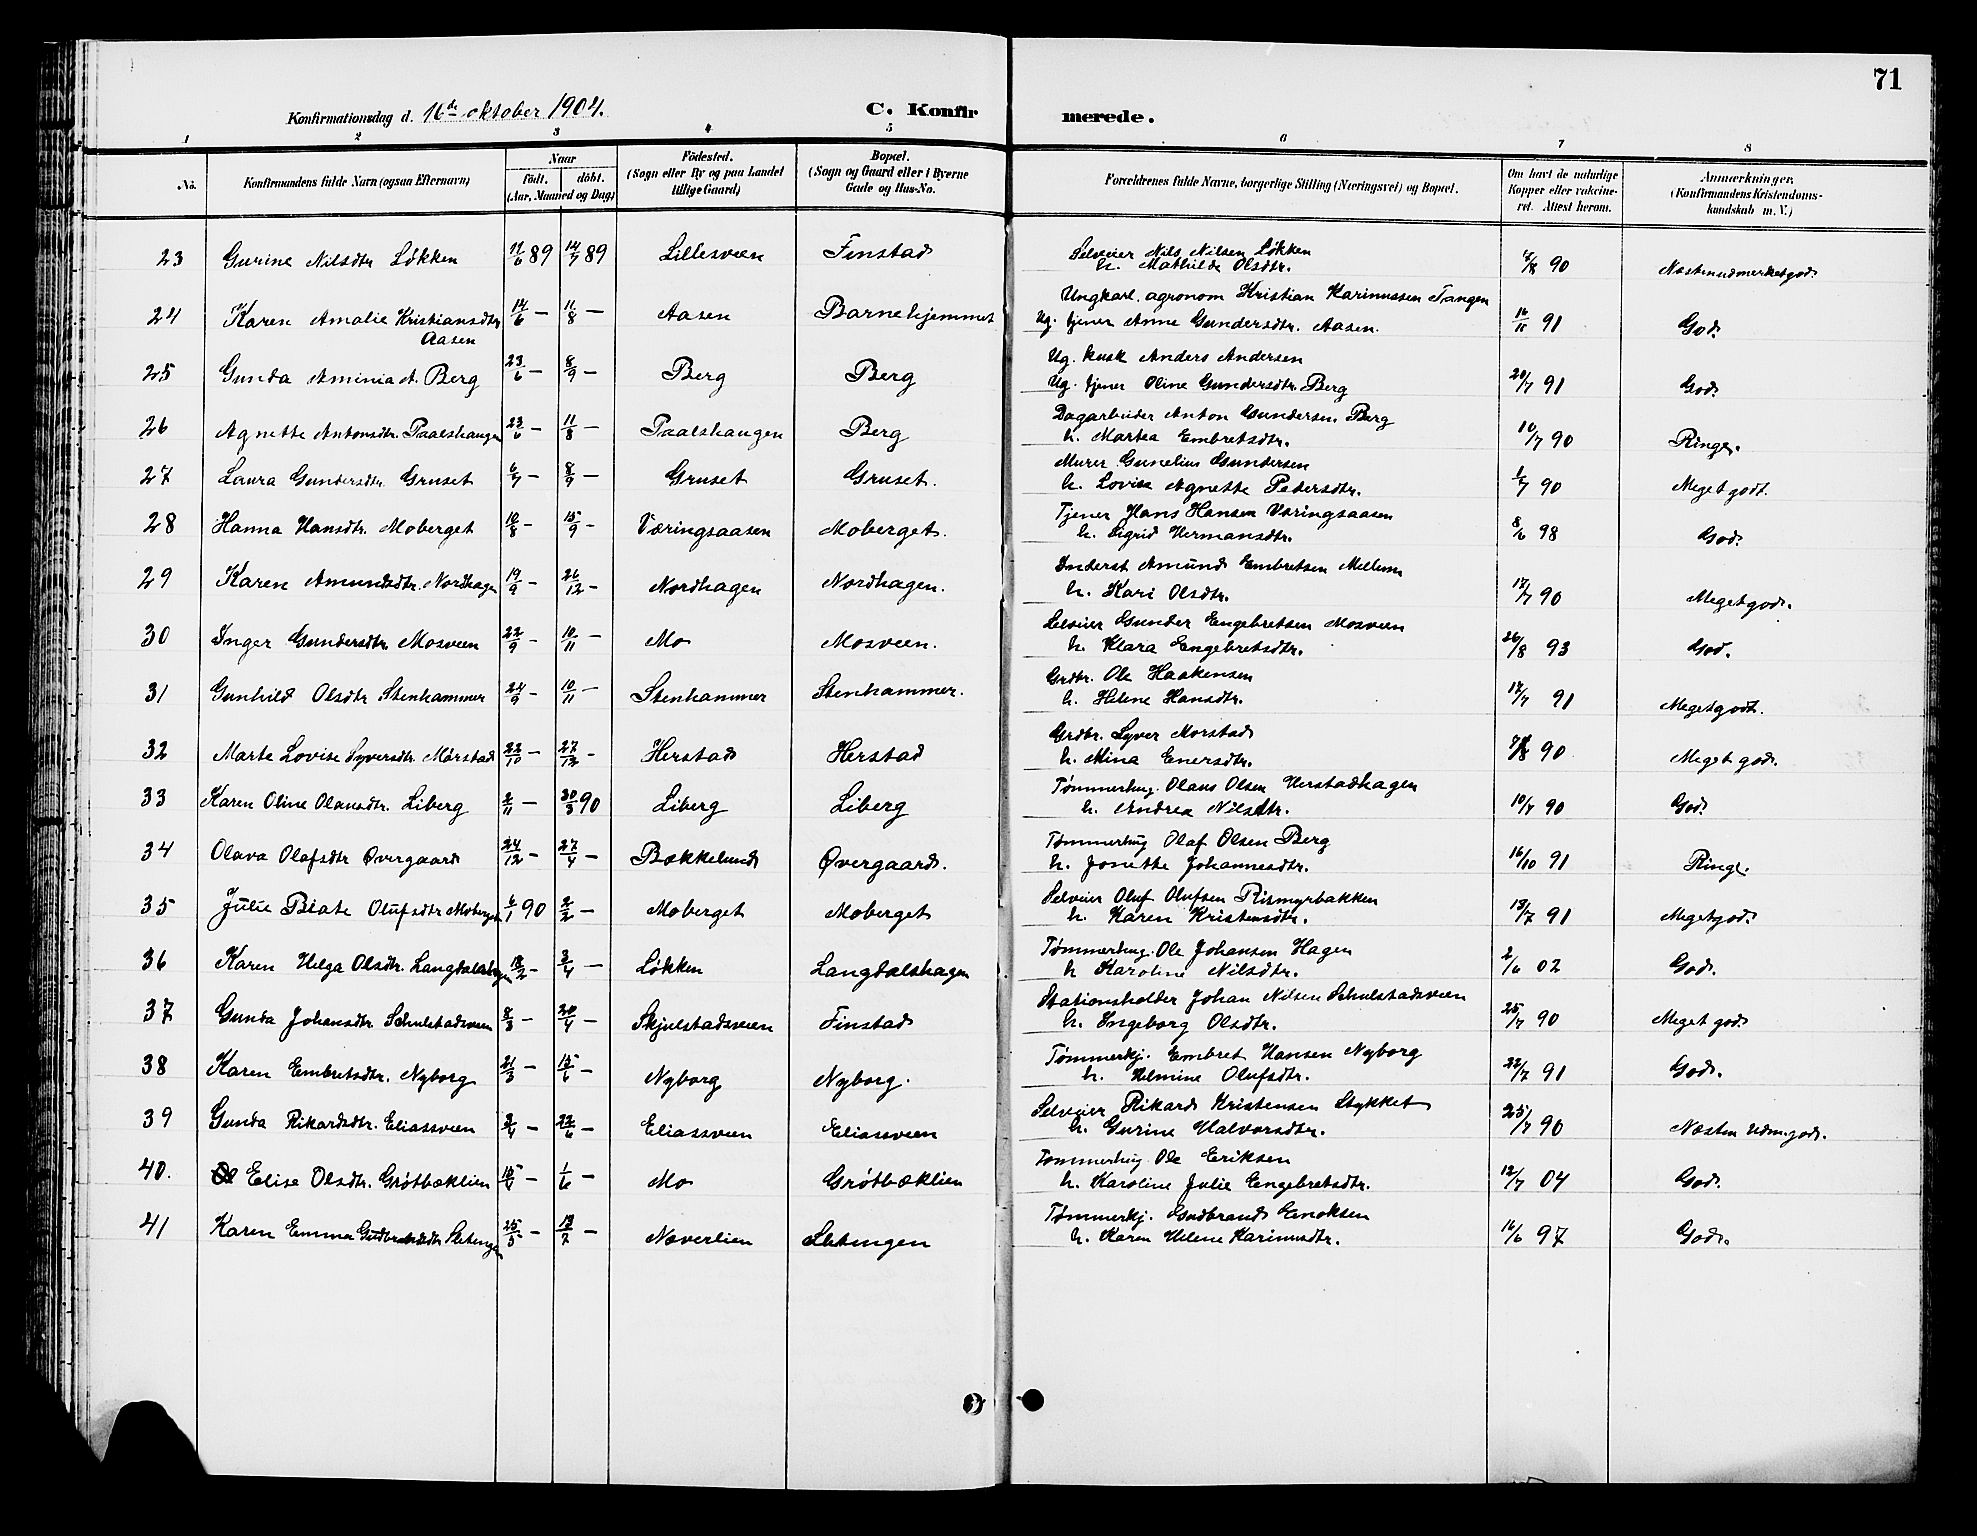 71
Konfirmationsdag d. 16de oktober 1904. C. Konfirmerede.
1 2 3 4 5 6 7 8
No. Konfirmandens fulde Navn (ogsaa Efternavn) Naar födt. döbt. (Aar, Maaned og Dag) Födested. (Sogn eller By og paa Landet tillige Gaard) Bopæl. (Sogn og Gaard eller i Byerne Gade og Hus-No. Forældrenes fulde Navne, borgerlige Stilling (Næringsvei) og Bopæl. Om havt de naturlige Kopper eller vaccineret. Attest herom. Anmærkninger, (Konfirmandens Kristendomskundskab m. V.)
23 Gurine Nilsdtr Løkken 11/6 89 14/7 89 Lillesveen Finstad Selveier Nils Nilsen Løkken
h. Mathilde Olsdtr. 90 Næsten udmerket god.
24 Karen Amalie Kristiansdtr Aasen 14/6 — 11/8 — Aasen Barnehjemmet Ungkarl. agronom Kristian Karinussen Tangen
Ug. tjener Anne Gundersdtr. Aasen. 91 God.
25 Gunda Aminia A. Berg 23/6 — 8/9 — Berg Berg Ug. kusk Anders Andersen
Ug. tjener Oline Gundersdtr. Berg 20/7 91 God.
26 Agnette Antonsdtr. Paalshaugen 23/6 — 11/8 — Paalshaugen Berg Dagarbeider Anton Gundersen Berg
h. Martea Embretsdtr. 10/7 90 Ringe.
27 Laura Gundersdtr. Gruset 6/7 — 8/9 — Gruset Gruset. Murer Gunelius Gundersen
h. Lovise Agnette Petersdtr. 1/7 90 Meget godt.
28 Hanna Hansdtr. Moberget 10/8 — 15/9 — Væringsaasen Moberget. Tjener Hans Hansen Væringsaasen
h. Sigrid Hermansdtr. 8/6 98 God.
29 Karen Amundsdtr. Nordhagen 19/9 — 26/12 — Nordhagen Nordhagen. Inderst Amund Embretsen Mellum
h. Kari Olsdtr. 17/7 90 Meget god.
30 Inger Gundersdtr. Mosveen 22/9 — 10/11 — Mo Mosveen. Selveier Gunder Engebretsen Mosveen
h. Klara Engebretsdtr. 26/8 93 God.
31 Gunhild Olsdtr Stenhammer 24/9 — 10/11 — Stenhammer Stenhammer. Grdbr. Ole Haakensen
h. Helene Hansdtr. 17/7 91 Meget godt.
32 Marte Lovise Syversdtr. Mørstad 22/10 — 27/12 — Herstad Herstad Grdbr. Syver Morstad
h. Mina Enersdtr. 90 Meget god.
33 Karen Oline Olausdtr. Liberg 2/11 — 30/3 90 Liberg Liberg Tømmerhug. Olaus Olsen Herstadhagen
h. Andrea Nilsdtr. 10/7 90 God.
34 Olava Olafsdtr Øvergaard 24/12 — 27/4 — Bækkelund Øvergaard. Tømmerhug Olaf Olsen Berg
h. Jonette Johannesdtr. 16/10 91 Ringe.
35 Julie Biate Olufsdtr Moberget 6/1 90 2/2 — Moberget Moberget Selveier Oluf Olufsen Rismyrbakken
h. Karen Kristensdtr. 18/7 91 Meget god.
36 Karen Helga Olsdtr. Langdalshagen 18/2 — 3/4 — Løkken Langdalshagen Tømmerhug. Ole Johansen Hagen
h Karoline Nilsdtr. 2/6 02 God.
37 Gunda Johansdtr. Schulstadsveen 8/3 — 20/4 — Skjulstadsveen Finstad Stationsholder Johan Nilsen Schulstadsveen
h. Ingeborg Olsdtr. 25/7 90 Meget god.
38 Karen Embretsdtr. Nyborg 21/3 — 15/6 — Nyborg Nyborg. Tømmerkj. Embret Hansen Nyborg
h. Helmine Olufsdtr. 22/7 91 God.
39 Gunda Rikardsdtr. Eliassveen 3/4 — 22/6 — Eliassveen Eliassveen Selveier Rikard Kristensen Stykket
h. Gurine Halvorsdtr. 25/7 90 Næsten Udm. god.
40. Elise Olsdtr. Grøtbæklien 15/4 — 1/6 — Mo Grøtbæklien Tømmerhug. Ole Eriksen
h. Karoline Julie Engebretsdtr. 12/7 04 God.
41 Karen Emma Gudbrandsdtr Sletengen 25/5 — 13/7 — Noverlien Sletengen Tømmerkj. Gudbrand Enoksen
h. Karen Helene Karinusdtr. 16/6 97 God.